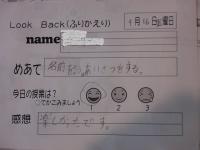 Look Back(ふりかえり)
4月16日火曜日
name
めあて
名前
あいさつをする。
今日の授業は？
○でかこみましょう
1 2 3
感想
楽しかったです。